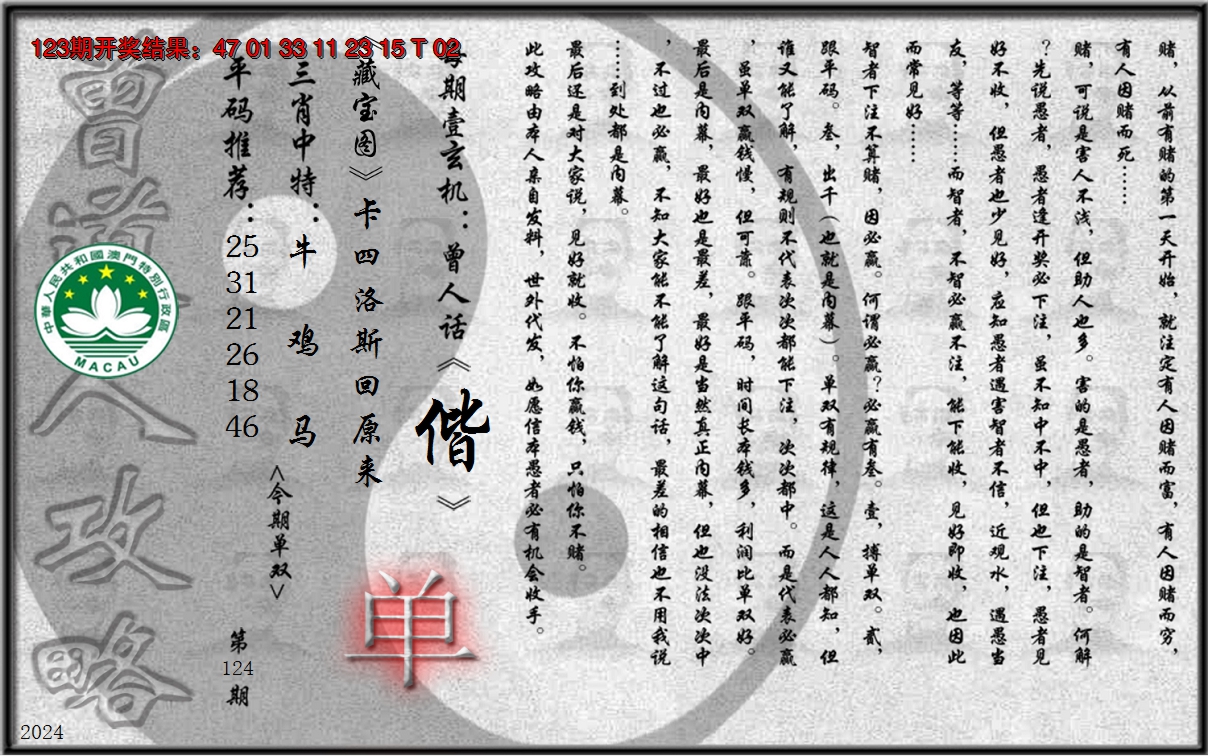 123期开奖结果：47 01 33 11 23 15 T 02
赌，从前有赌的第一天开始，就注定有人因赌而富，有人因赌而穷，
有人因赌而死……
赌，可说是害人不浅，但助人也多。害的是愚者，助的是智者。何解
？先说愚者，愚者逢开奖必下注，虽不知中不中，但也下注，愚者见
好不收，但愚者也少见好，应知愚者遇害智者不信，近观水，遇愚当
友，等等……而智者，不智必赢不注，能下能收，见好即收，也因此
而常见好……
智者下注不算赌，因必赢。何谓必赢？必赢有叁。壹，搏单双。贰，
跟平码。叁，出千（也就是内幕）。单双有规律，这是人人都知，但
谁又能了解，有规则不代表次次都能下注，次次都中。而是代表必赢
，虽单双赢钱慢，但可靠。跟平码，时间长本钱多，利润比单双好。
最后是内幕，最好也是最差，最好是当然真正内幕，但也没法次次中
，不过也必赢，不知大家能不能了解这句话，最差的相信也不用我说
……到处都是内幕。
最后还是对大家说，见好就收。不怕你赢钱，只怕你不赌。
此攻略由本人亲自发料，世外代发，如愿信本愚者必有机会收手。
每期壹玄机：曾人话《偕》
《藏宝图》卡四洛斯回原来
单
三肖中特：牛 鸡 马
<今期单双>
平码推荐：25 31 21 26 18 46
第124期
曾道人攻略
中華人民共和國澳門特別行政區
MACAU
2024